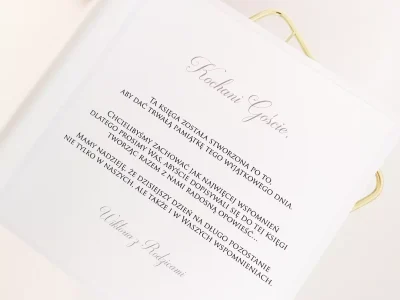 Kochani Goście,
TA KSIĘGA ZOSTAŁA STWORZONA PO TO,
ABY DAĆ TRWAŁĄ PAMIĄTKĘ TEGO WYJĄTKOWEGO DNIA.
CHCIELIBYŚMY ZACHOWAĆ JAK NAJWIĘCEJ WSPOMNIEŃ
DLATEGO PROSIMY WAS, ABYŚCIE DOPISYWALI SIĘ DO TEJ KSIĘGI
TWORZĄC RAZEM Z NAMI RADOSNĄ OPOWIEŚĆ...
MAMY NADZIEJĘ, ŻE DZISIEJSZY DZIEŃ NA DŁUGO POZOSTANIE
NIE TYLKO W NASZYCH, ALE TAKŻE I W WASZYCH WSPOMNIENIACH.
Wiktoria z Rodzicami